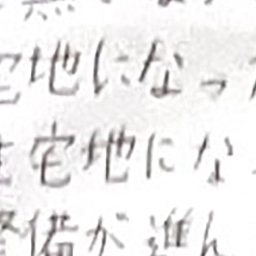 宅地になっ
住宅地にな
備が進ん